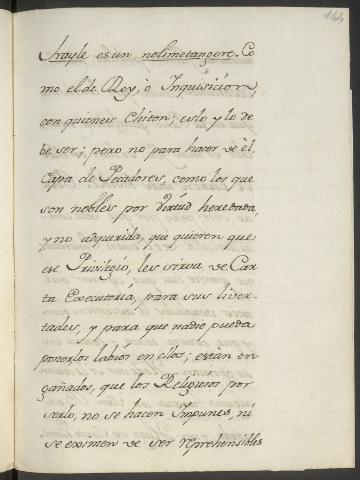 144
Frayle es un nolimetangere. Co
mo el de Rey, ò Inquisicion,
con quienes Chiton; eslo y lo de
be ser; pero no para hacer de èl
Capa de Pecadores, como los que
son nobles por Virtud heredada,
y no adquerida, que quieren que
ese Privilegio, les sirva de Car
ta Executoria, para sus liver-
tades, y para que nadie pueda
ponerlos labios en ellos; estàn en
gañados, que los Religiosos por
serlo, no se hacen Impunes, ni
se eximen de ser reprehensibles